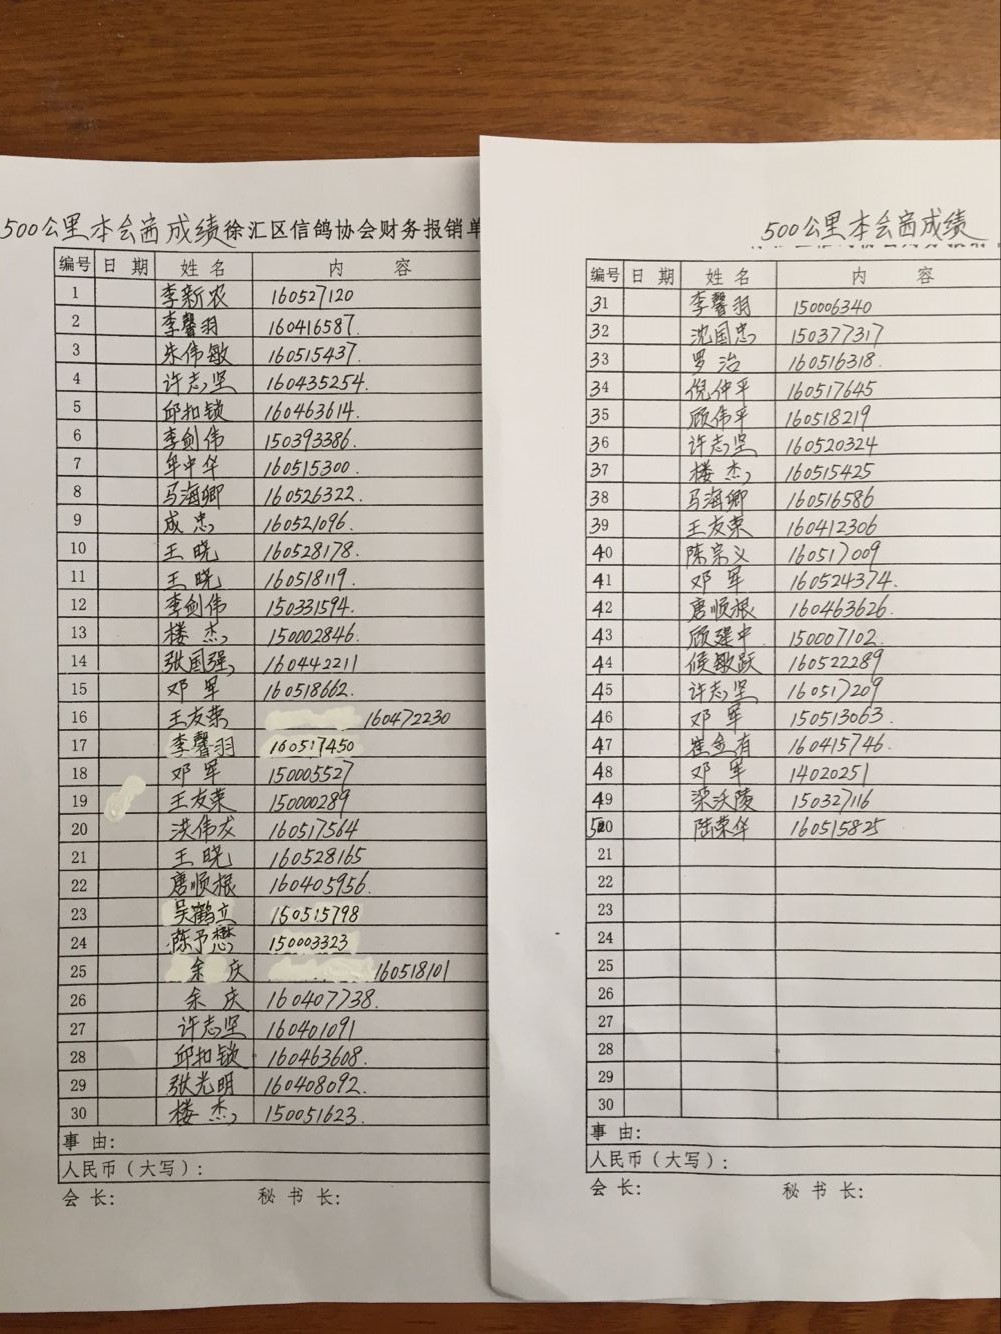 500公里本会齿成绩徐汇区信鸽协会财务报销单
编号 日 期 姓 名 内 容
1 李新农 160527120
2 李馨羽 160416587.
3 朱伟敏 160515437.
4 许志坚 160435254.
5 邱扣锁 160463614.
6 李剑伟 150393386.
7 牟中华 160515300.
8 马海卿 160526322.
9 成忠 160521096.
10 王晓 160528178.
11 王晓 160518119.
12 李剑伟 150331594.
13 楼杰 150002846.
14 张国强 160442211
15 邓军 160518662.
16 王友荣 160472230
17 李馨羽 160517450
18 邓军 150005527
19 王友荣 150000289
20 洪伟友 160517564
21 王晓 160528165
22 唐顺根 160405956.
23 吴鹤立 160515798
24 陈予懋 150003323
25 余庆 160518101
26 余庆 160407738.
27 许志坚 160401091
28 邱扣锁 160463608.
29 张光明 160408092.
30 楼杰 150051623.
事 由:
人民币(大写):
会 长: 秘 书 长:
500公里本会齿成绩
编号 日 期 姓 名 内 容
31 李馨羽 150006340
32 沈国忠 150377317
33 罗治 160516318.
34 倪仲平 160517645
35 顾伟平 160518219
36 许志坚 160520324
37 楼杰 160515425
38 马海卿 160516586
39 王友荣 160412306
40 陈宗义 160517009
41 邓军 160524374.
42 唐顺根 160463626.
43 顾建中 150007102.
44 侯敏跃 160522289
45 许志坚 160517209
46 邓军 150513063.
47 崔金有 160415746.
48 邓军 14020251
49 梁沃陵 150327116
50 陆荣华 160515825
21
22
23
24
25
26
27
28
29
30
事 由:
人民币(大写):
会 长: 秘 书 长: